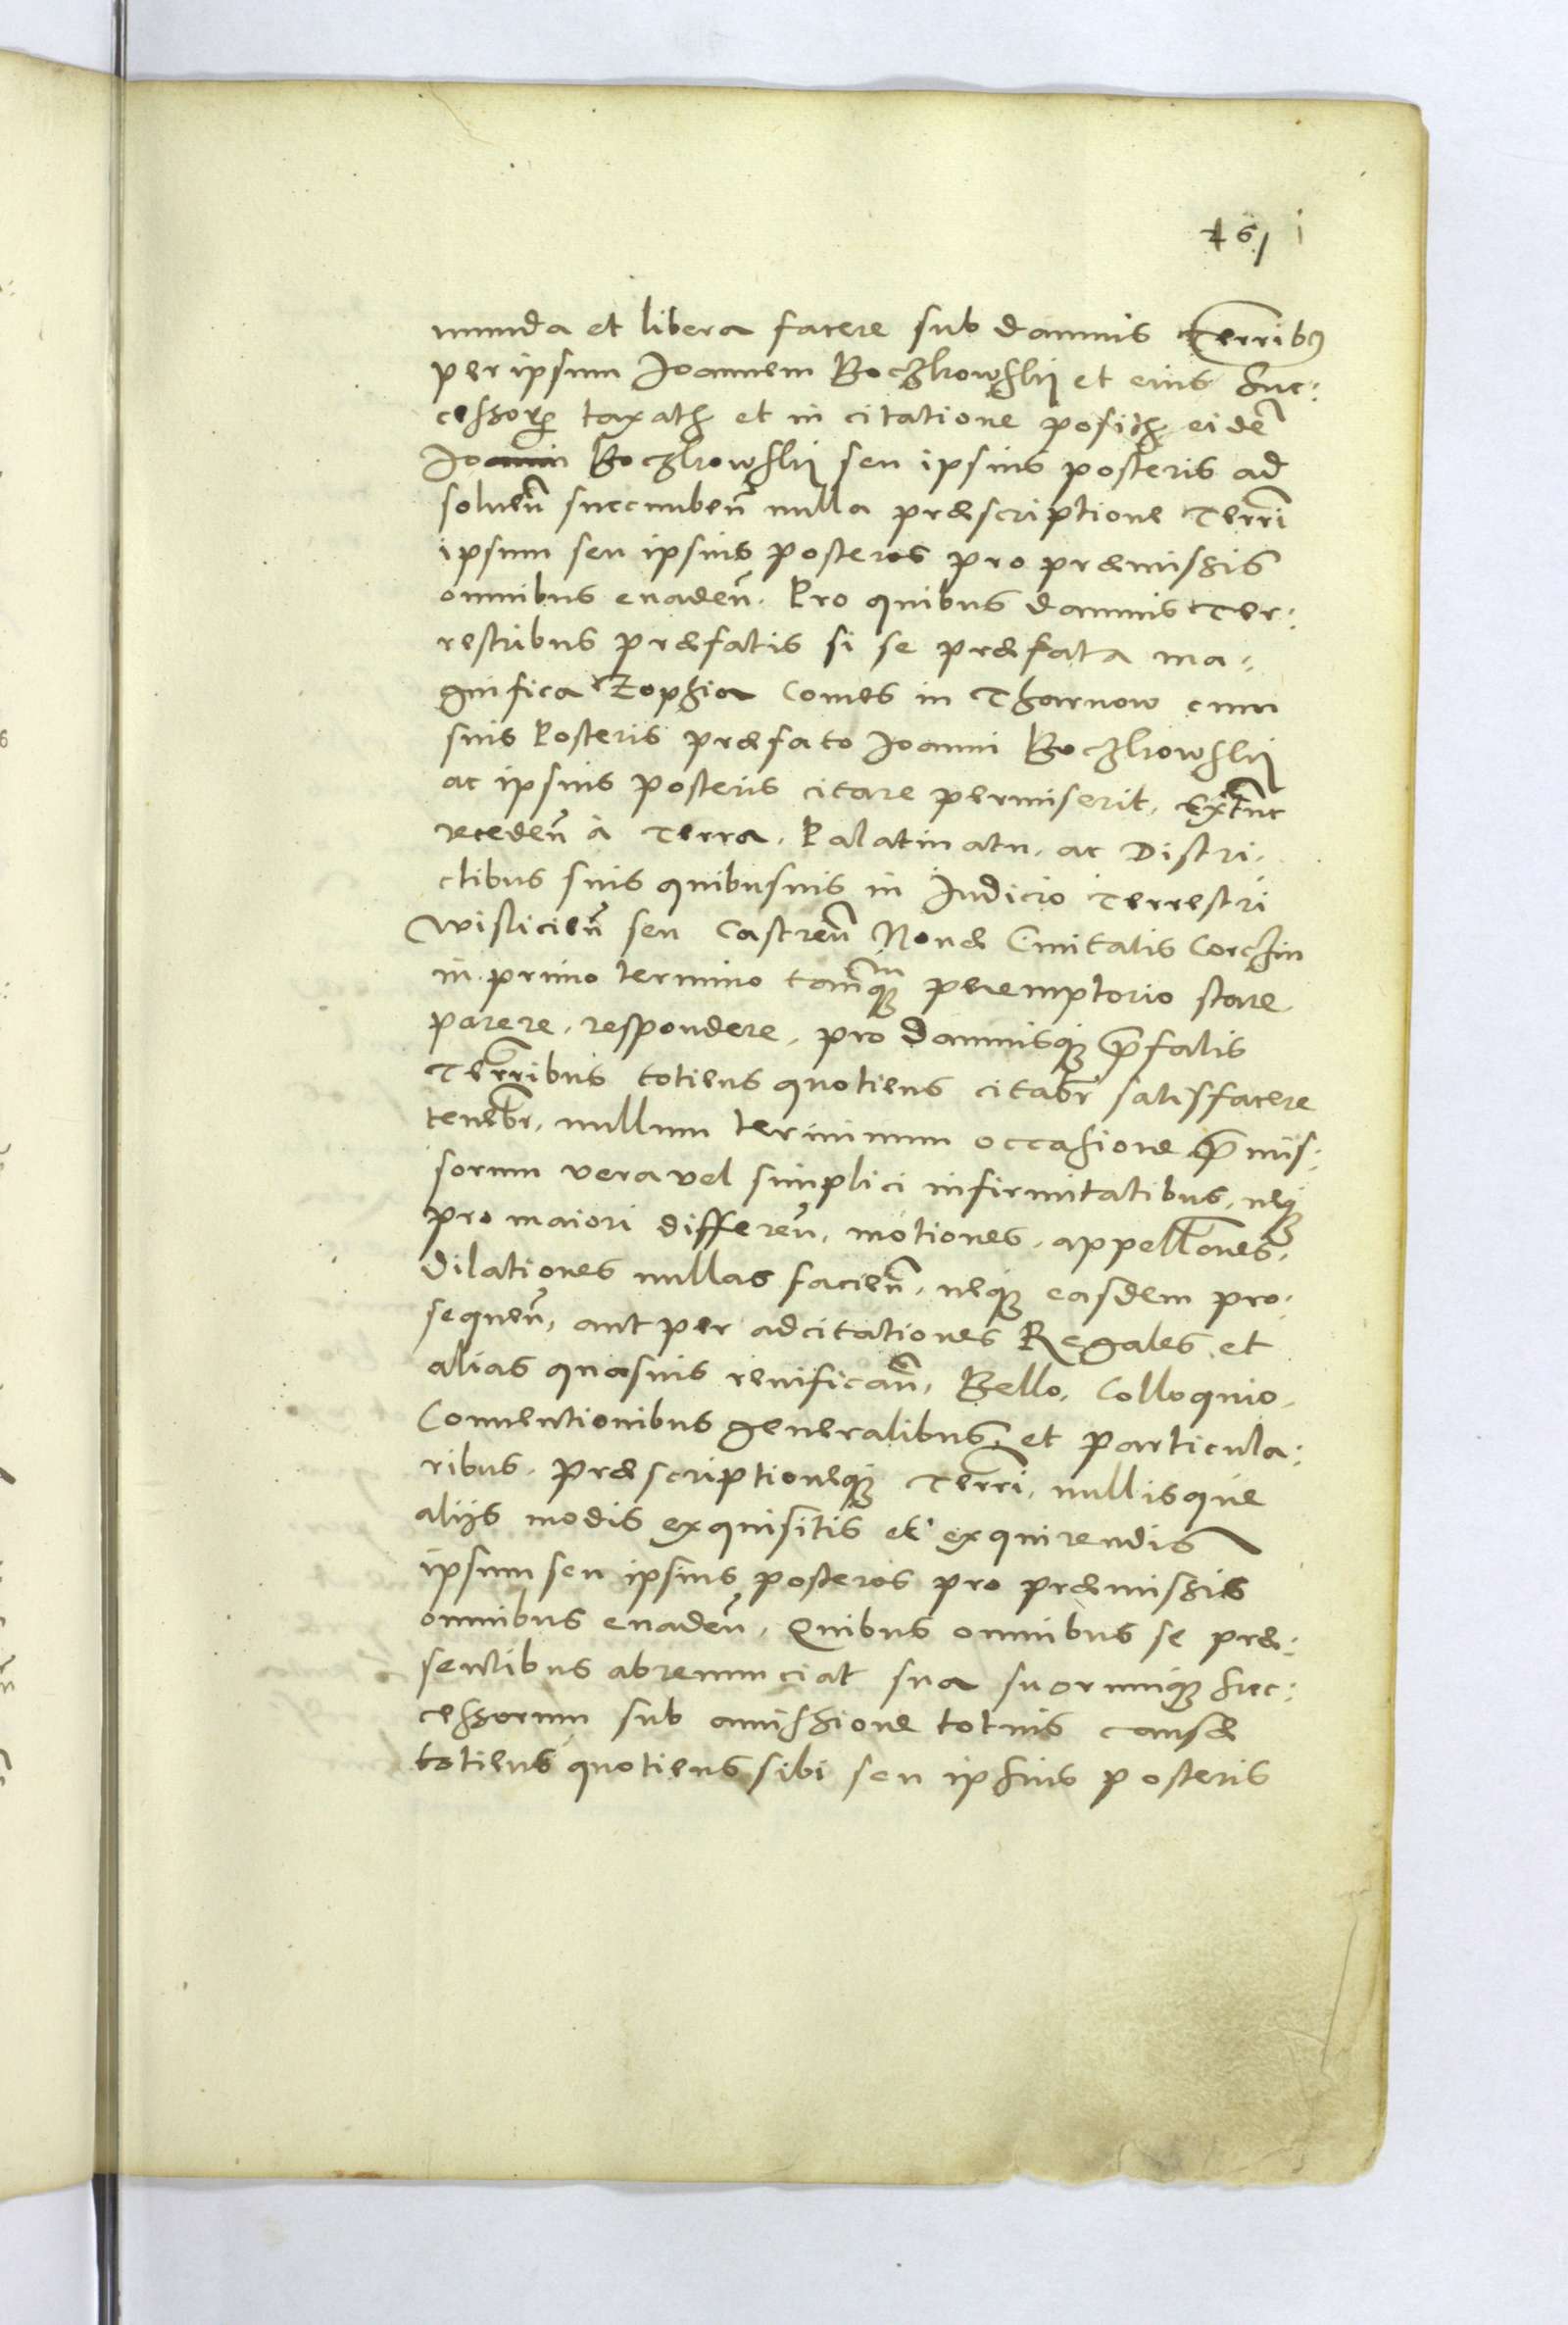 161
munda et libera facere sub damnis Terribꝯ
per ipsum Joannem Boczkowskij et eius suc:
cessorꝭ taxatꝭ et in citatione positꝭ eidē
Joanni Boczkowskij seu ipsius posteris ad
soluen̄ succumben̄ nulla præscriptione Terrī
ipsum seu ipsius posteros pro præmissis
omnibus euaden̄. Pro quibus damnis Ter:
restribus præfatis si se præfata ma:
gnifica Zophia Comes in Tharnow cum
suis Posteris præfato Joanni Boczkowskij
ac ipsius posteris citare permiserit, extūc
receden̄ à Terra, Palatinatu, ac Distri:
ctibus suis quibusuis in Judicio Terrestri
Wislicien̄ seu Castren̄ Nouæ Ciuitatis Corchin
in primo termino tanqꝫ peremptorio stare
parere, respondere, pro damnisqꝫ p̄fatis
Terribus totiens quotiens citabr̄ satisfacere
tenebr̄, nullum terminum occasione p̄mis:
sorum vera vel simplici infirmitatibus, neqꝫ
pro maiori differen̄, motiones, appell̄ones,
dilationes nullas facien̄, neqꝫ easdem pro:
sequen̄, aut per adcitationes Regales et
alias quasuis reuifican̄, Bello, Colloquio,
Conuentionibus generalibus, et particula:
ribus, præscriptioneqꝫ Terrī, nullisque
alijs modis exquisitis et exquirendis
ipsum seu ipsius posteros pro præmissis
omnibus euaden̄, Quibus omnibus se præ:
sentibus abrenunciat sua suorumqꝫ suc:
cessorum sub amissione totius causæ
totiens quotiens sibi seu ipsius posteris